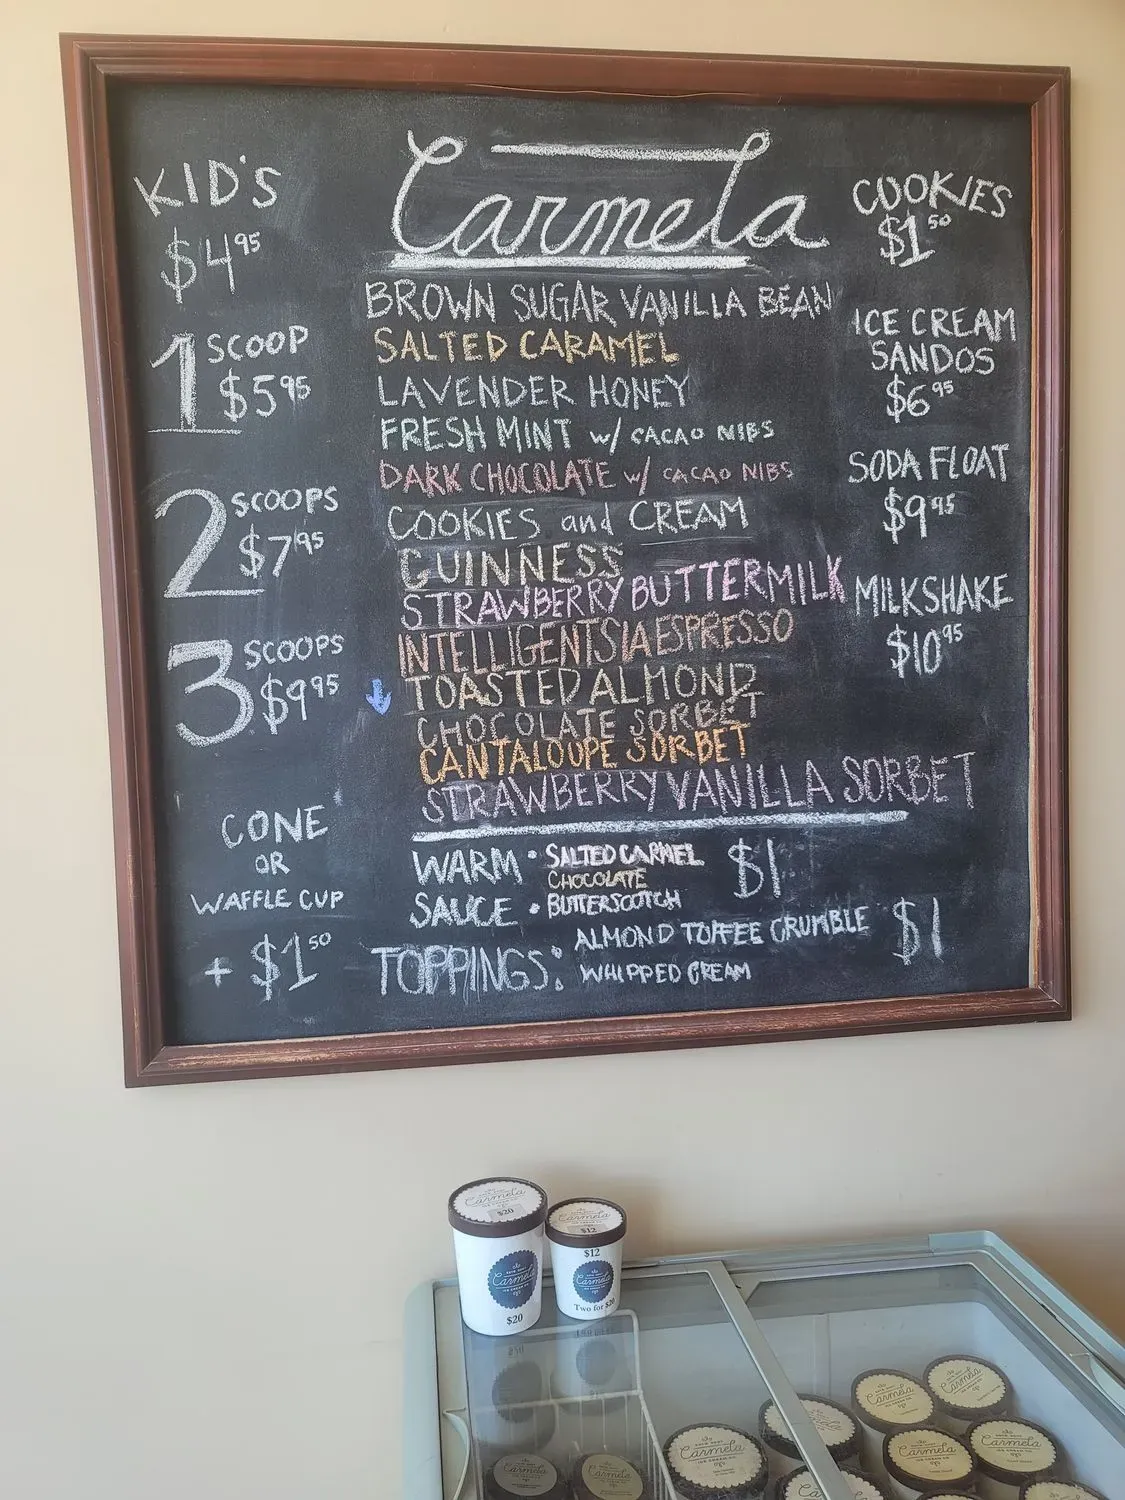 Carmela
KID'S
$4.95
1 SCOOP
$5.95
2 SCOOPS
$7.95
3 SCOOPS
$9.95
CONE
OR
WAFFLE CUP
+ $1.50
BROWN SUGAR VANILLA BEAN
SALTED CARAMEL
LAVENDER HONEY
FRESH MINT w/ CACAO NIBS
DARK CHOCOLATE w/ CACAO NIBS
COOKIES and CREAM
GUINNESS
STRAWBERRY BUTTERMILK
INTELLIGENTSIA ESPRESSO
TOASTED ALMOND
CHOCOLATE SORBET
CANTALOUPE SORBET
STRAWBERRY VANILLA SORBET
WARM SAUCE
• SALTED CARMEL
CHOCOLATE
• BUTTERSCOTCH
$1
TOPPINGS:
ALMOND TOFFEE CRUMBLE
WHIPPED CREAM
$1
COOKIES
$1.50
ICE CREAM
SANDOS
$6.95
SODA FLOAT
$9.95
MILKSHAKE
$10.95
Carmela
$20
Carmela
$20
Carmela
$12
$12
Carmela
Two for $20
Carmela
ICE CREAM CO.
Carmela
Carmela
Carmela
Carmela